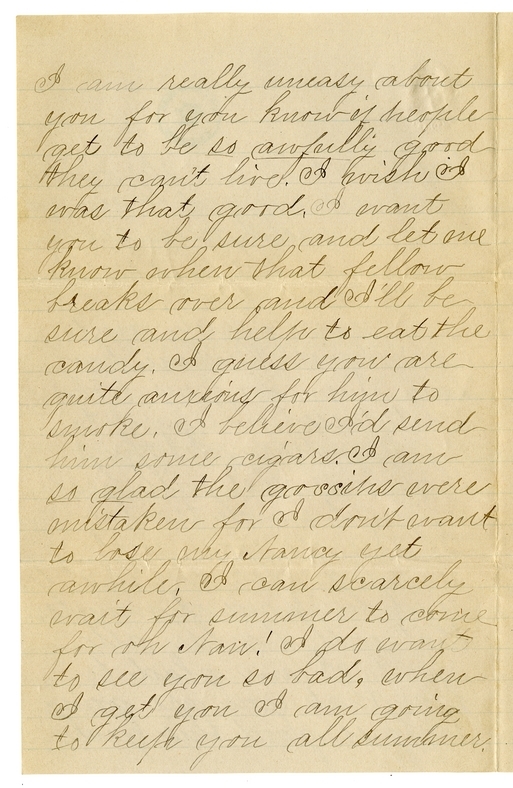 I am really uneasy about
you for you know if people
get to be so awfully good
they can't live. I wish I
was that good. I want
you to be sure and let me
know when that fellow
breaks over and I'll be
sure and help to eat the
candy. I guess you are
quite anxious for him to
smoke. I believe I'd send
him some cigars. I am
so glad the gossips were
mistaken for I don't want
to lose my Nancy yet
awhile. I can scarcely
wait for summer to come
for oh Nan! I do want
to see you so bad, when
I get you I am going
to keep you all summer.